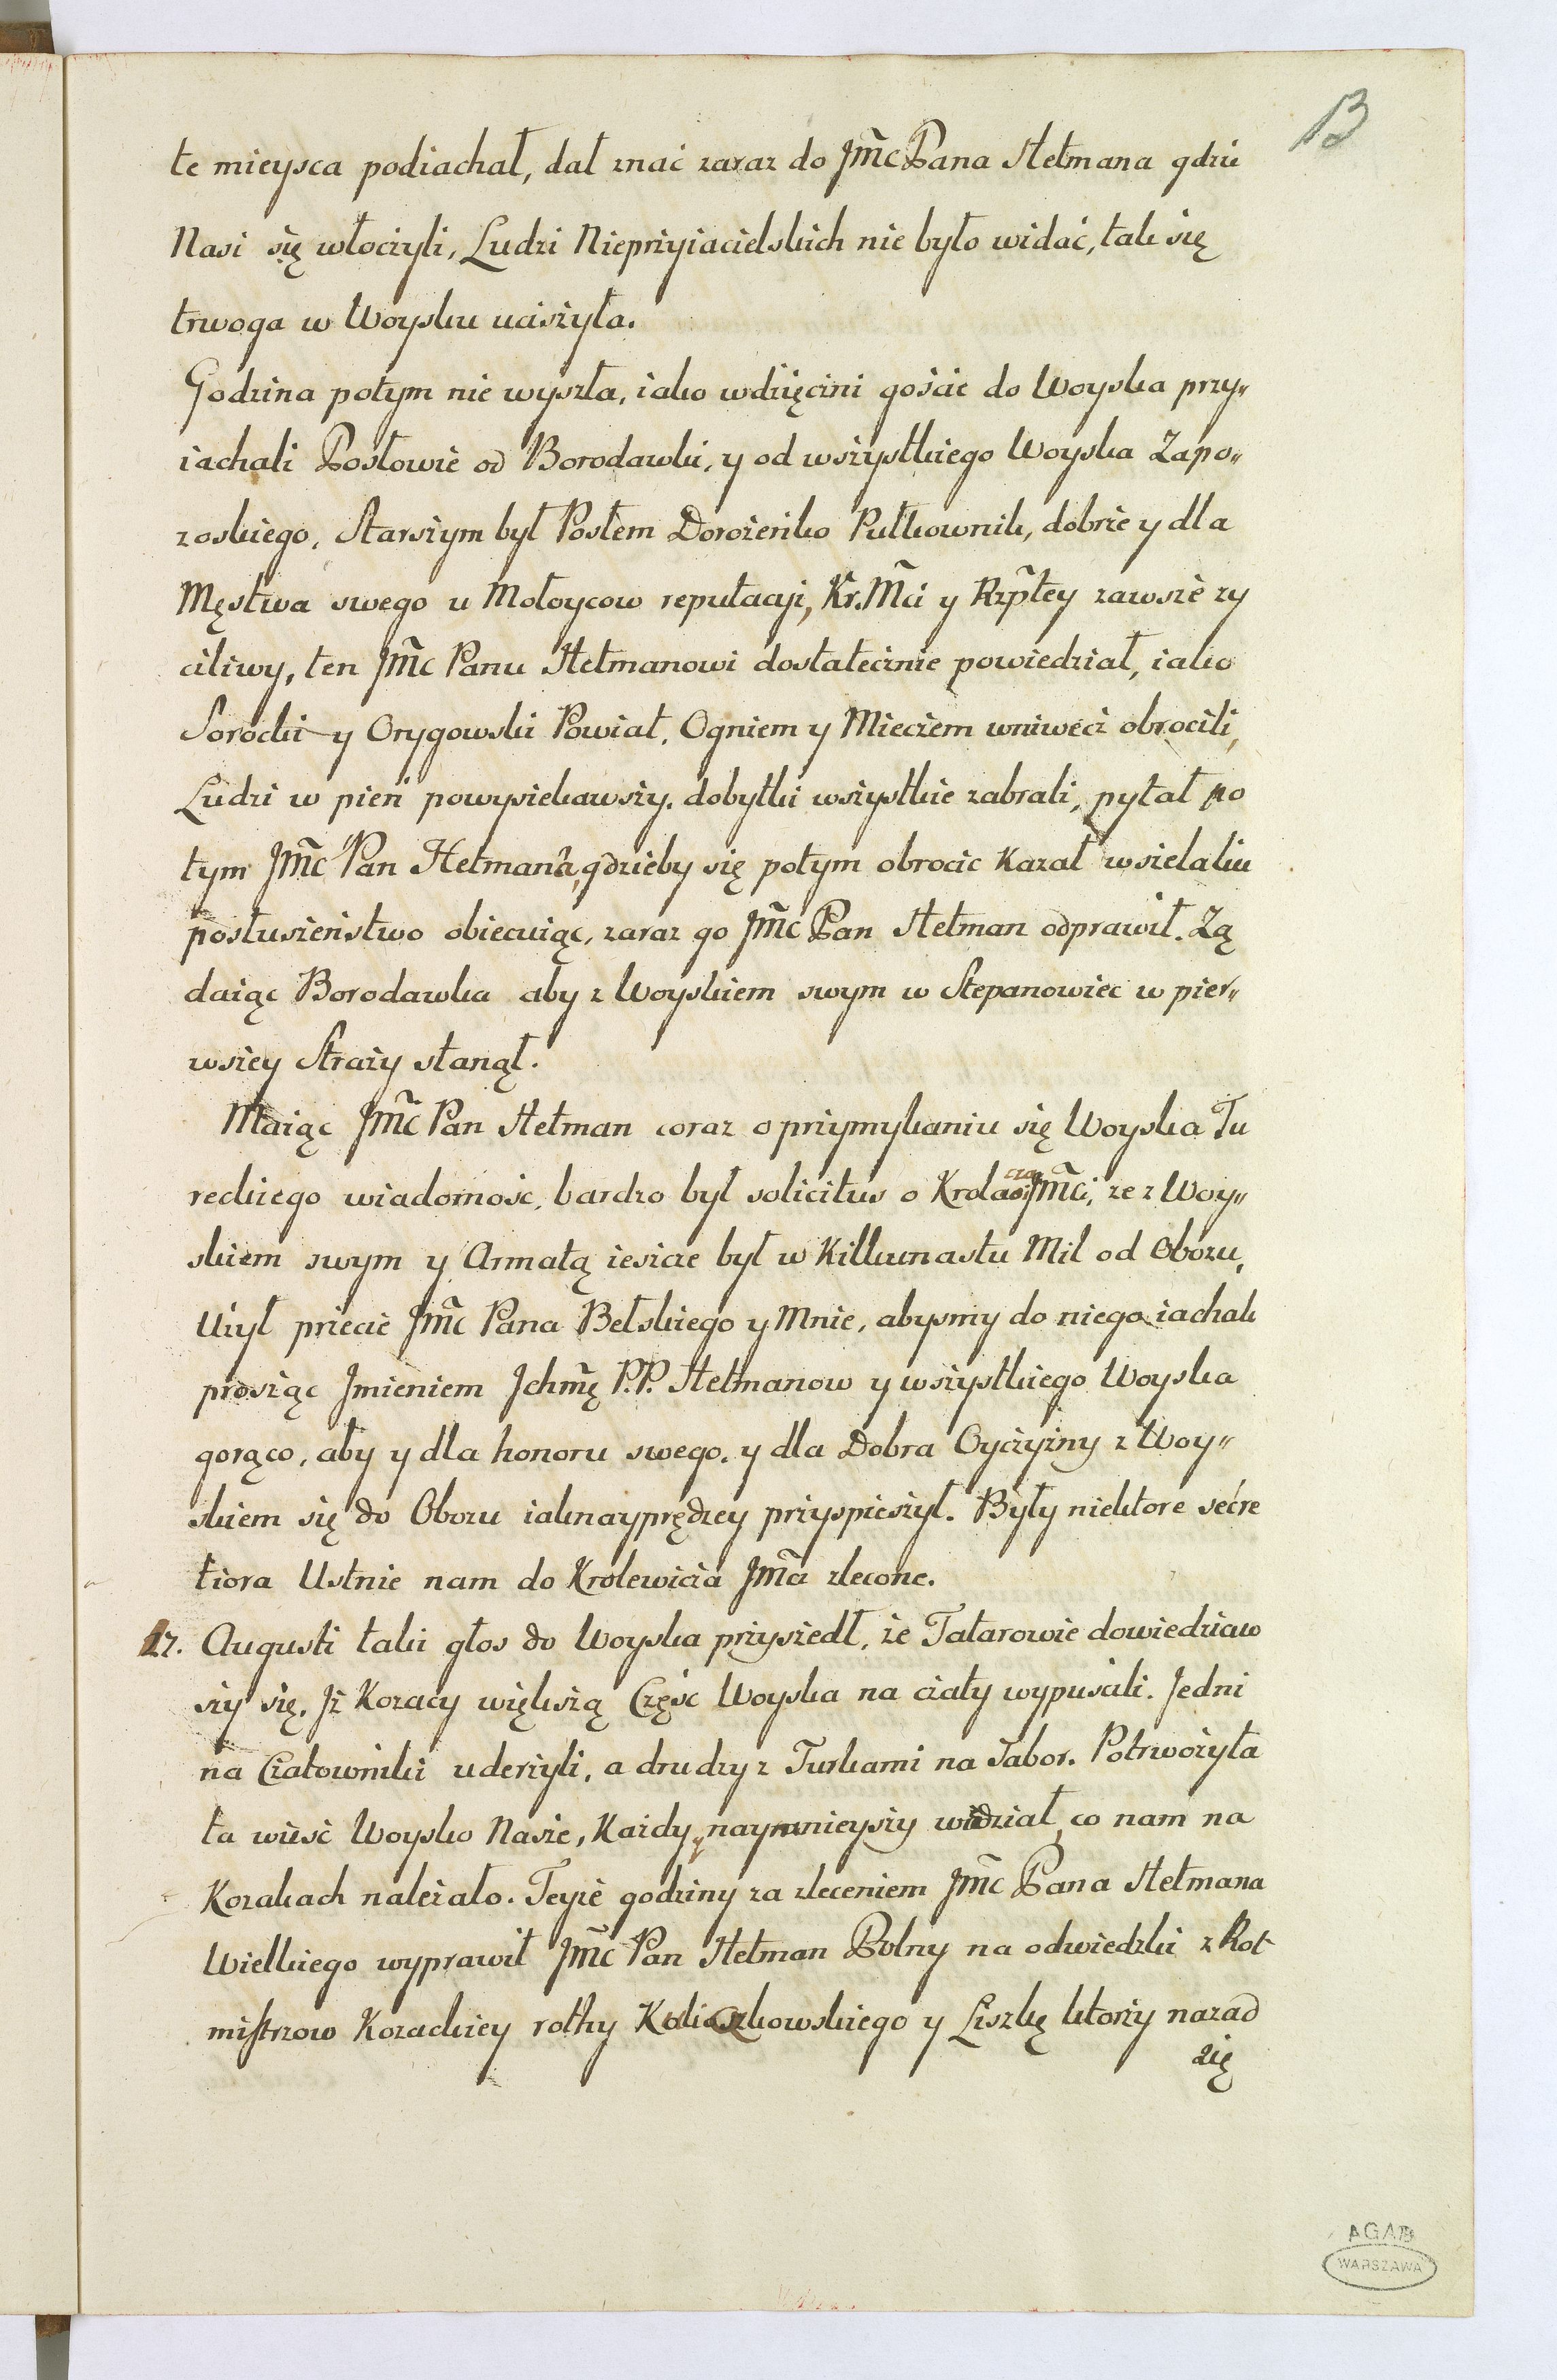 13
te mieysca podiachał, dał znać zaraz do Jm̃c Pana Hetmana gdzie
Nasi się włoczyli, Ludzi Nieprzyiacielskich nie było widać, tak się
trwoga w Woysku uciszyła.
Godzina potym nie wyszła, iako wdzięczni goście do Woyska przy„
iachali Posłowie od Borodawki, y od wszystkiego Woyska Zapo„
roskiego, Starszym był Posłem Dorożeńko Pułkownik, dobrze y dla
Męstwa swego u Mołoycow reputacyi, Kr. Mc̃i y Rzp̃tey zawsze ży
czliwy, ten Jm̃c Panu Hetmanowi dostatecznie powiedział, iako
Sorocki y Orygowski Powiat, Ogniem y Mieczem wniwecz obrocili,
Ludzi w pień powysiekawszy. dobytki wszystkie zabrali, pytał po
tym Jm̃c Pan Hetmana, gdzieby się potym obrocic kazał wszelakie
posłuszeństwo obiecuiąc, zaraz go Jm̃c Pan Hetman odprawił. Zą
daiąc Borodawka aby z Woyskiem swym w Stepanowiec w pier„
wszey Straży stanął.
Maiąc Jm̃c Pan Hetman coraz o przymykaniu się Woyska Tu
reckiego wiadomośc, bardzo był solicitus o Krolewicza Jm̃ci, że z Woy„
skiem swym y Armatą ieszcze był w Kilkunastu Mil od Obozu,
Użył przecie Jm̃c Pana Bełskiego y Mnie, abysmy do niego iachali
prosząc Jmieniem Ichm̃ę P.P. Hetmanow y wszystkiego Woyska
gorąco, aby y dla honoru swego, y dla Dobra Oyczyzny z Woy„
skiem się do Obozu iaknayprędzey przyspieszył. Były niektore secre
tiora Ustnie nam do Krolewicza Jm̃ci zlecone.
17. Augusti taki głos do Woyska przyszedł, że Tatarowie dowiedziaw
szy się, Jż Kozacy większą Częśc Woyska na czaty wypuscili. Jedni
na Czatowniki uderzyli, a drudzy z Turkami na Tabor. Potrwożyła
ta wieśc Woysko Nasze, Każdy y naymnieyszy widział, co nam na
Kozakach należało. Teyże godziny za zleceniem Jm̃c Pana Hetmana
Wielkiego wyprawił Jm̃c Pan Hetman Polny na odwiedzki z Rot
mistrzow Kozackiey rotky y Liszkę ktorzy nazad
zię
AGAD
WARSZAWA